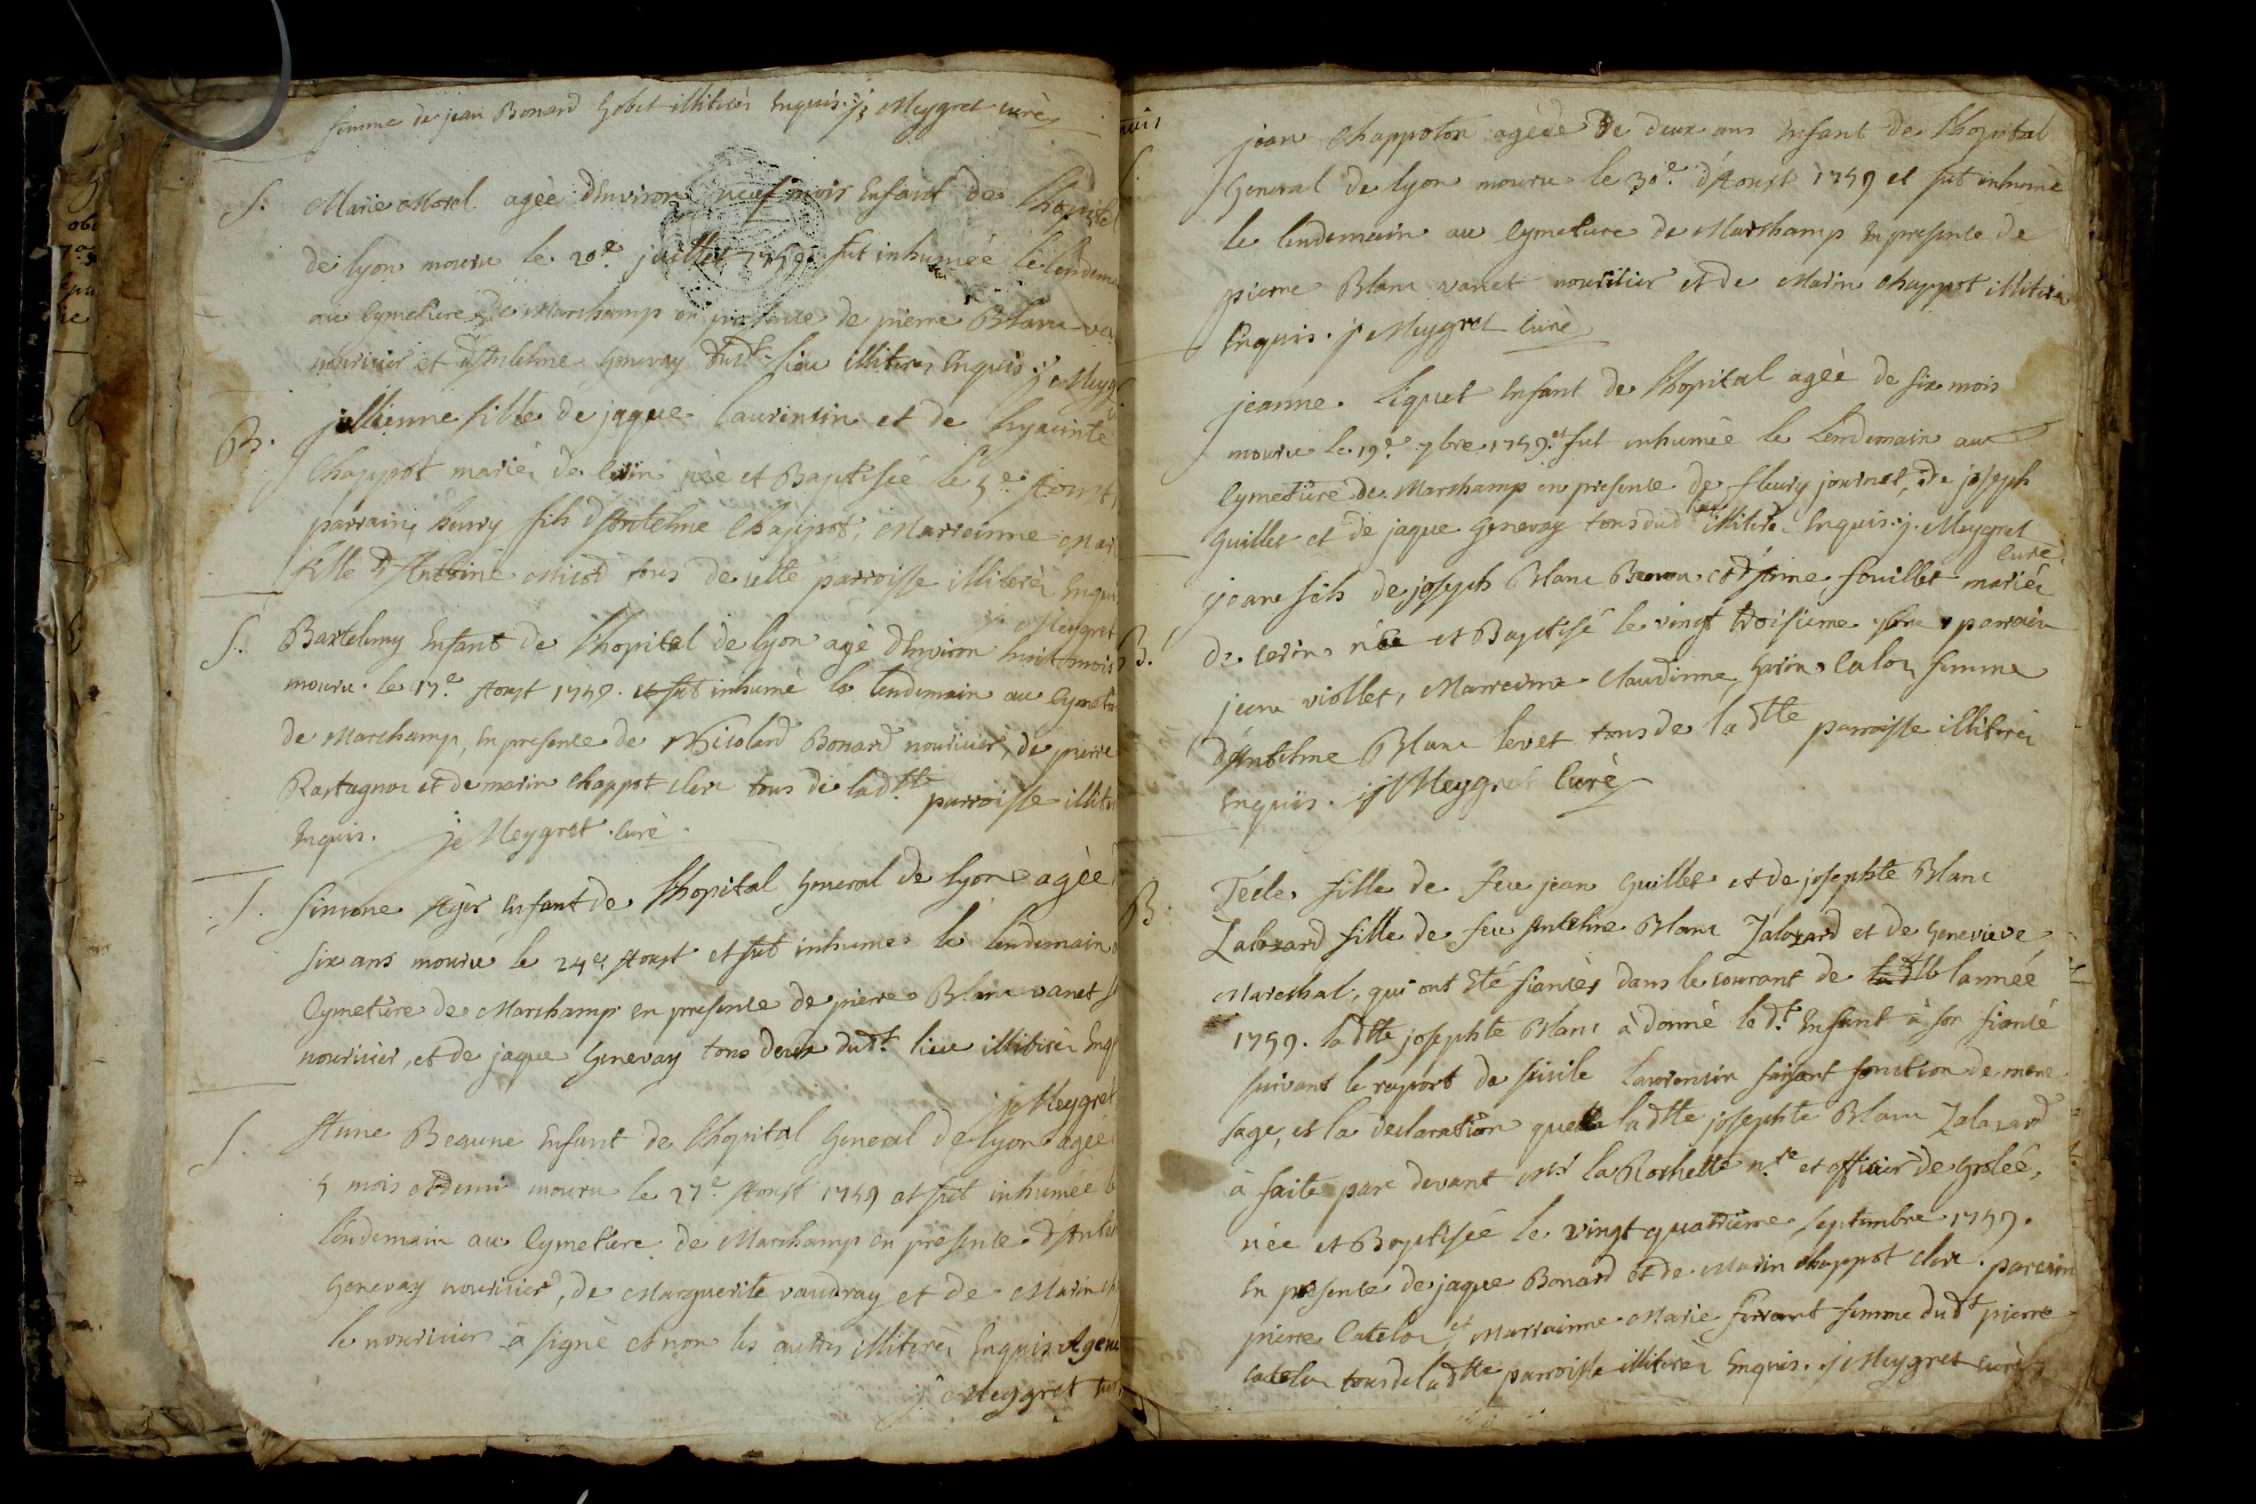 femme de jean Bonard Gobet illiterès Enquis. j Meygret curè
S. Marie Morel agèe dEnviron neuf mois Enfant de lhopital
de lyon mouru le 20e. juillet 1759. fut inhumèe le lendema
au Cymetiere de Marchamp en presence de pierre Blanc va
nouricier et dAntelme Genevay dudt. lieu illiterès Enquis. j Meyg
B. jullienne fille de jaque Laurencin et de hyacinte
Chappot marièz de Cerin nèe et Baptisèe le 5e. Aoust
parrain, henry fils dAntelme Chappot, Marreinne Mar
fille dAntoine Micod tous de cette parroisse illiterèz Enqui
j. Meygret
S. Bartelemy Enfant de lhopital de lyon agè dEnviron huit mois
mouru le 17e. Aoust 1759. et fut inhumè le lendemain au Cymet
de Marchamp, en presence de Nicolard Bonard nouricier, de pierre
Rastagnon et de marin chappot clerc tous de ladtte parroisse illit
Enquis. j. Meygret. Curè.
S. Simone Enfant de lhopital General de lyon agèe
six ans mouru le 24e. Aoust et fut inhumee le lendemain
Cymetiere de Marchamp en presence de pierre Blanc vanet
nouricier, et de jaque Genevay tous deux dudt. lieu illiterèz Enq
j. Meygret
S. Anne Beaune Enfant de lhopital General de lyon agèe
5 mois et demi mouru le 27e. Aoust 1759 et fut inhumèe l
lendemain au Cymetiere de Marchamp en presence dAntel
Genevay nouricier, de Marguerite vaudray et de Marin ch
le nouricier à signè et non les autres illiterèz Enquis. AGene
j. Meygret cur
nuis
jean Chappoton agèe de deux ans Enfant de lhopital
General de lyon mouru le 30e. dAoust 1759 et fut inhumè
le lendemain au Cymetiere de Marchamp En presence de
pierre Blanc vanet nouricier et de Marin chappot illiterè
Enquis. j Meygret Curè
jeanne Liquet Enfant de lhopital agèe de six mois
mouru le 19e. 7bre. 1759. et fut inhumèe le lendemain au
Cymetiere de Marchamp en presence de fleury journet, de joseph
Guillet et de jaque Genevay tous dud lieu illiterèz Enquis. j. Meygret
Curè
B. jean fils de joseph Blanc et dAnne fouillet marièz
de cerin nèe et Baptisé le vingt troisieme 7bre parrain
jean viollet, Marreinne Claudinne Catlon femme
dAntelme Blanc levet tous de ladtte parroisse illiterèz
Enquis. j Meygret Curè
B. Tècle fille de feu jean Guillet et de josephte Blanc
Lalozard fille de feu Antelme Blanc Lalozard et de Genevieve
Mareschal, qui ont Eté fiancès dans le courant de ladtte lannèe
1759. ladtte josephte Blanc à donnè ledt. Enfant à son fiancè
suivant le raport de sicile Laurencin faisant fonction de mere
sage, et la declaration que ladtte josephte Blanc Lalozard
à faite par devant Mr. la Rochette nre. et officier de Grolèe,
nèe et Baptisèe le vingt quatrieme septembre 1759.
En presence de jaque Bonard et de Marin chappot clerc. parrain
pierre Catelon, et Marrainne Marie ferrant femme dudt pierre
Catelon tous de ladtte parroisse illiterèz Enquis. j Meygret curè